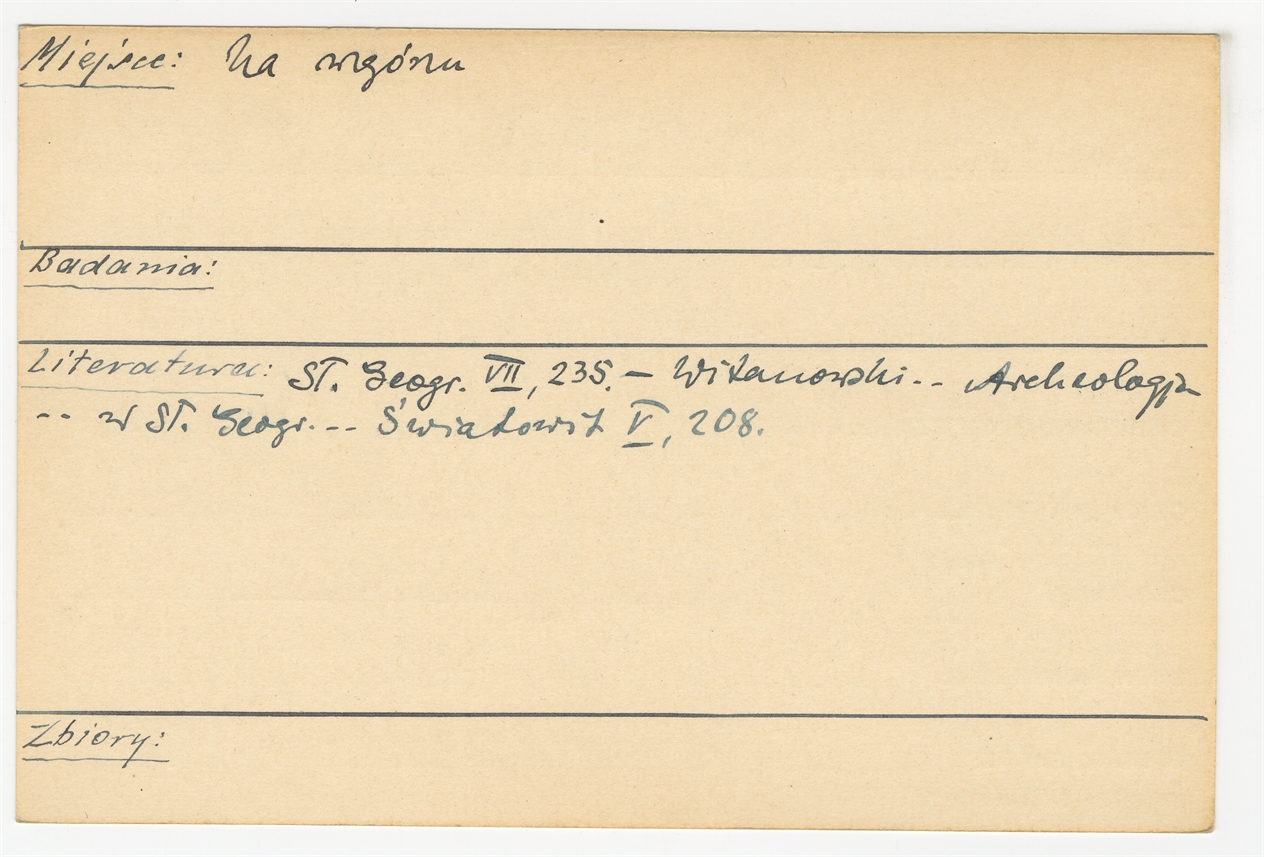 Miejsce: Na wzgórzu
Badania:
Literatura: Sł. Geogr. VII, 235. – Witanowski.. Archeologja
-- w Sł. Geogr. -- Światowit V, 208.
Zbiory: